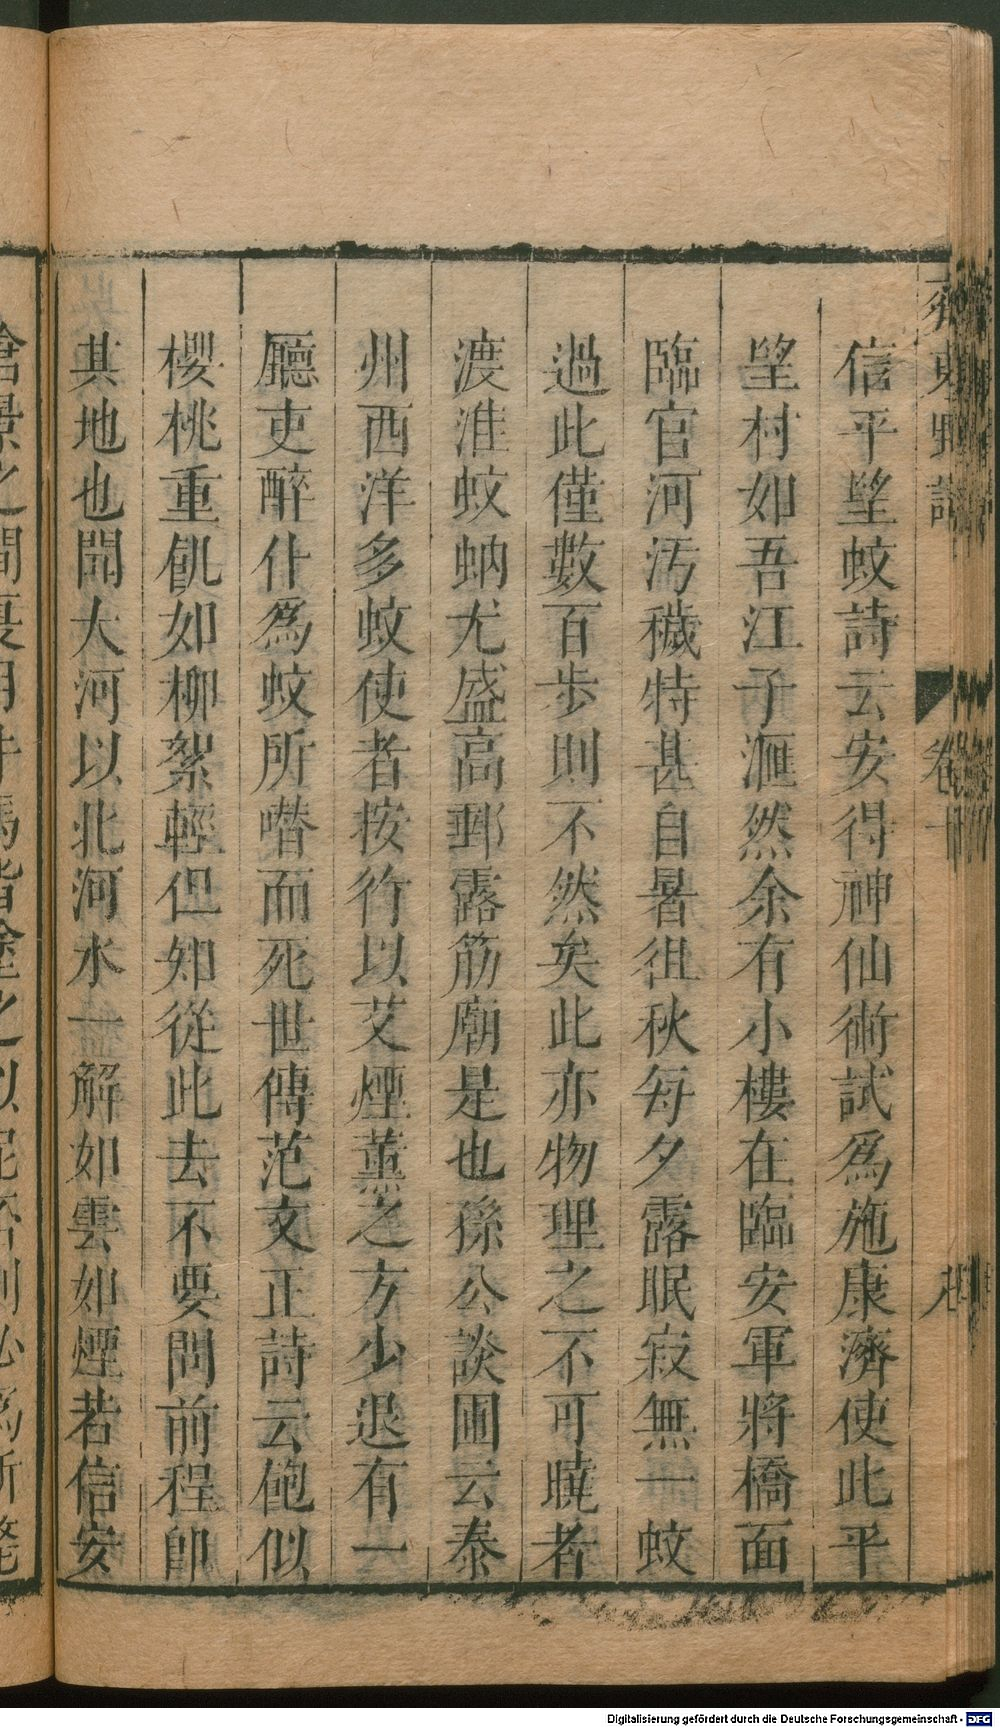 信平望蚊詩云安得神仙術試爲施康濟使此平
望村如吾江子滙然余有小樓在臨安軍將橋面
臨官河汚穢特甚自暑徂秋每夕露眠寂無一蚊
過此僅數百步則不然矣此亦物理之不可曉者
渡淮蚊蚋尤盛高郵露筋廟是也孫公談圃云泰
州西洋多蚊使者按行以艾煙薰之方少退有一
廳吏醉仆爲蚊所噆而死世傳范文正詩云飽似
櫻桃重飢如柳絮輕但知從此去不要問前程卽
其地也聞大河以北河水一解如雲如煙若信安
滄景之間夏月牛馬皆塗之以泥否則必爲所斃
卷十
Digitalisierung gefördert durch die Deutsche Forschungsgemeinschaft - DFG